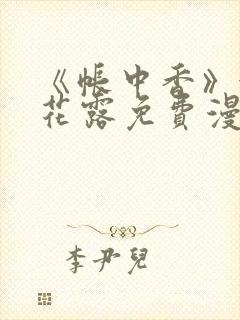 《帳中香》
花露免費漫
李尹兒